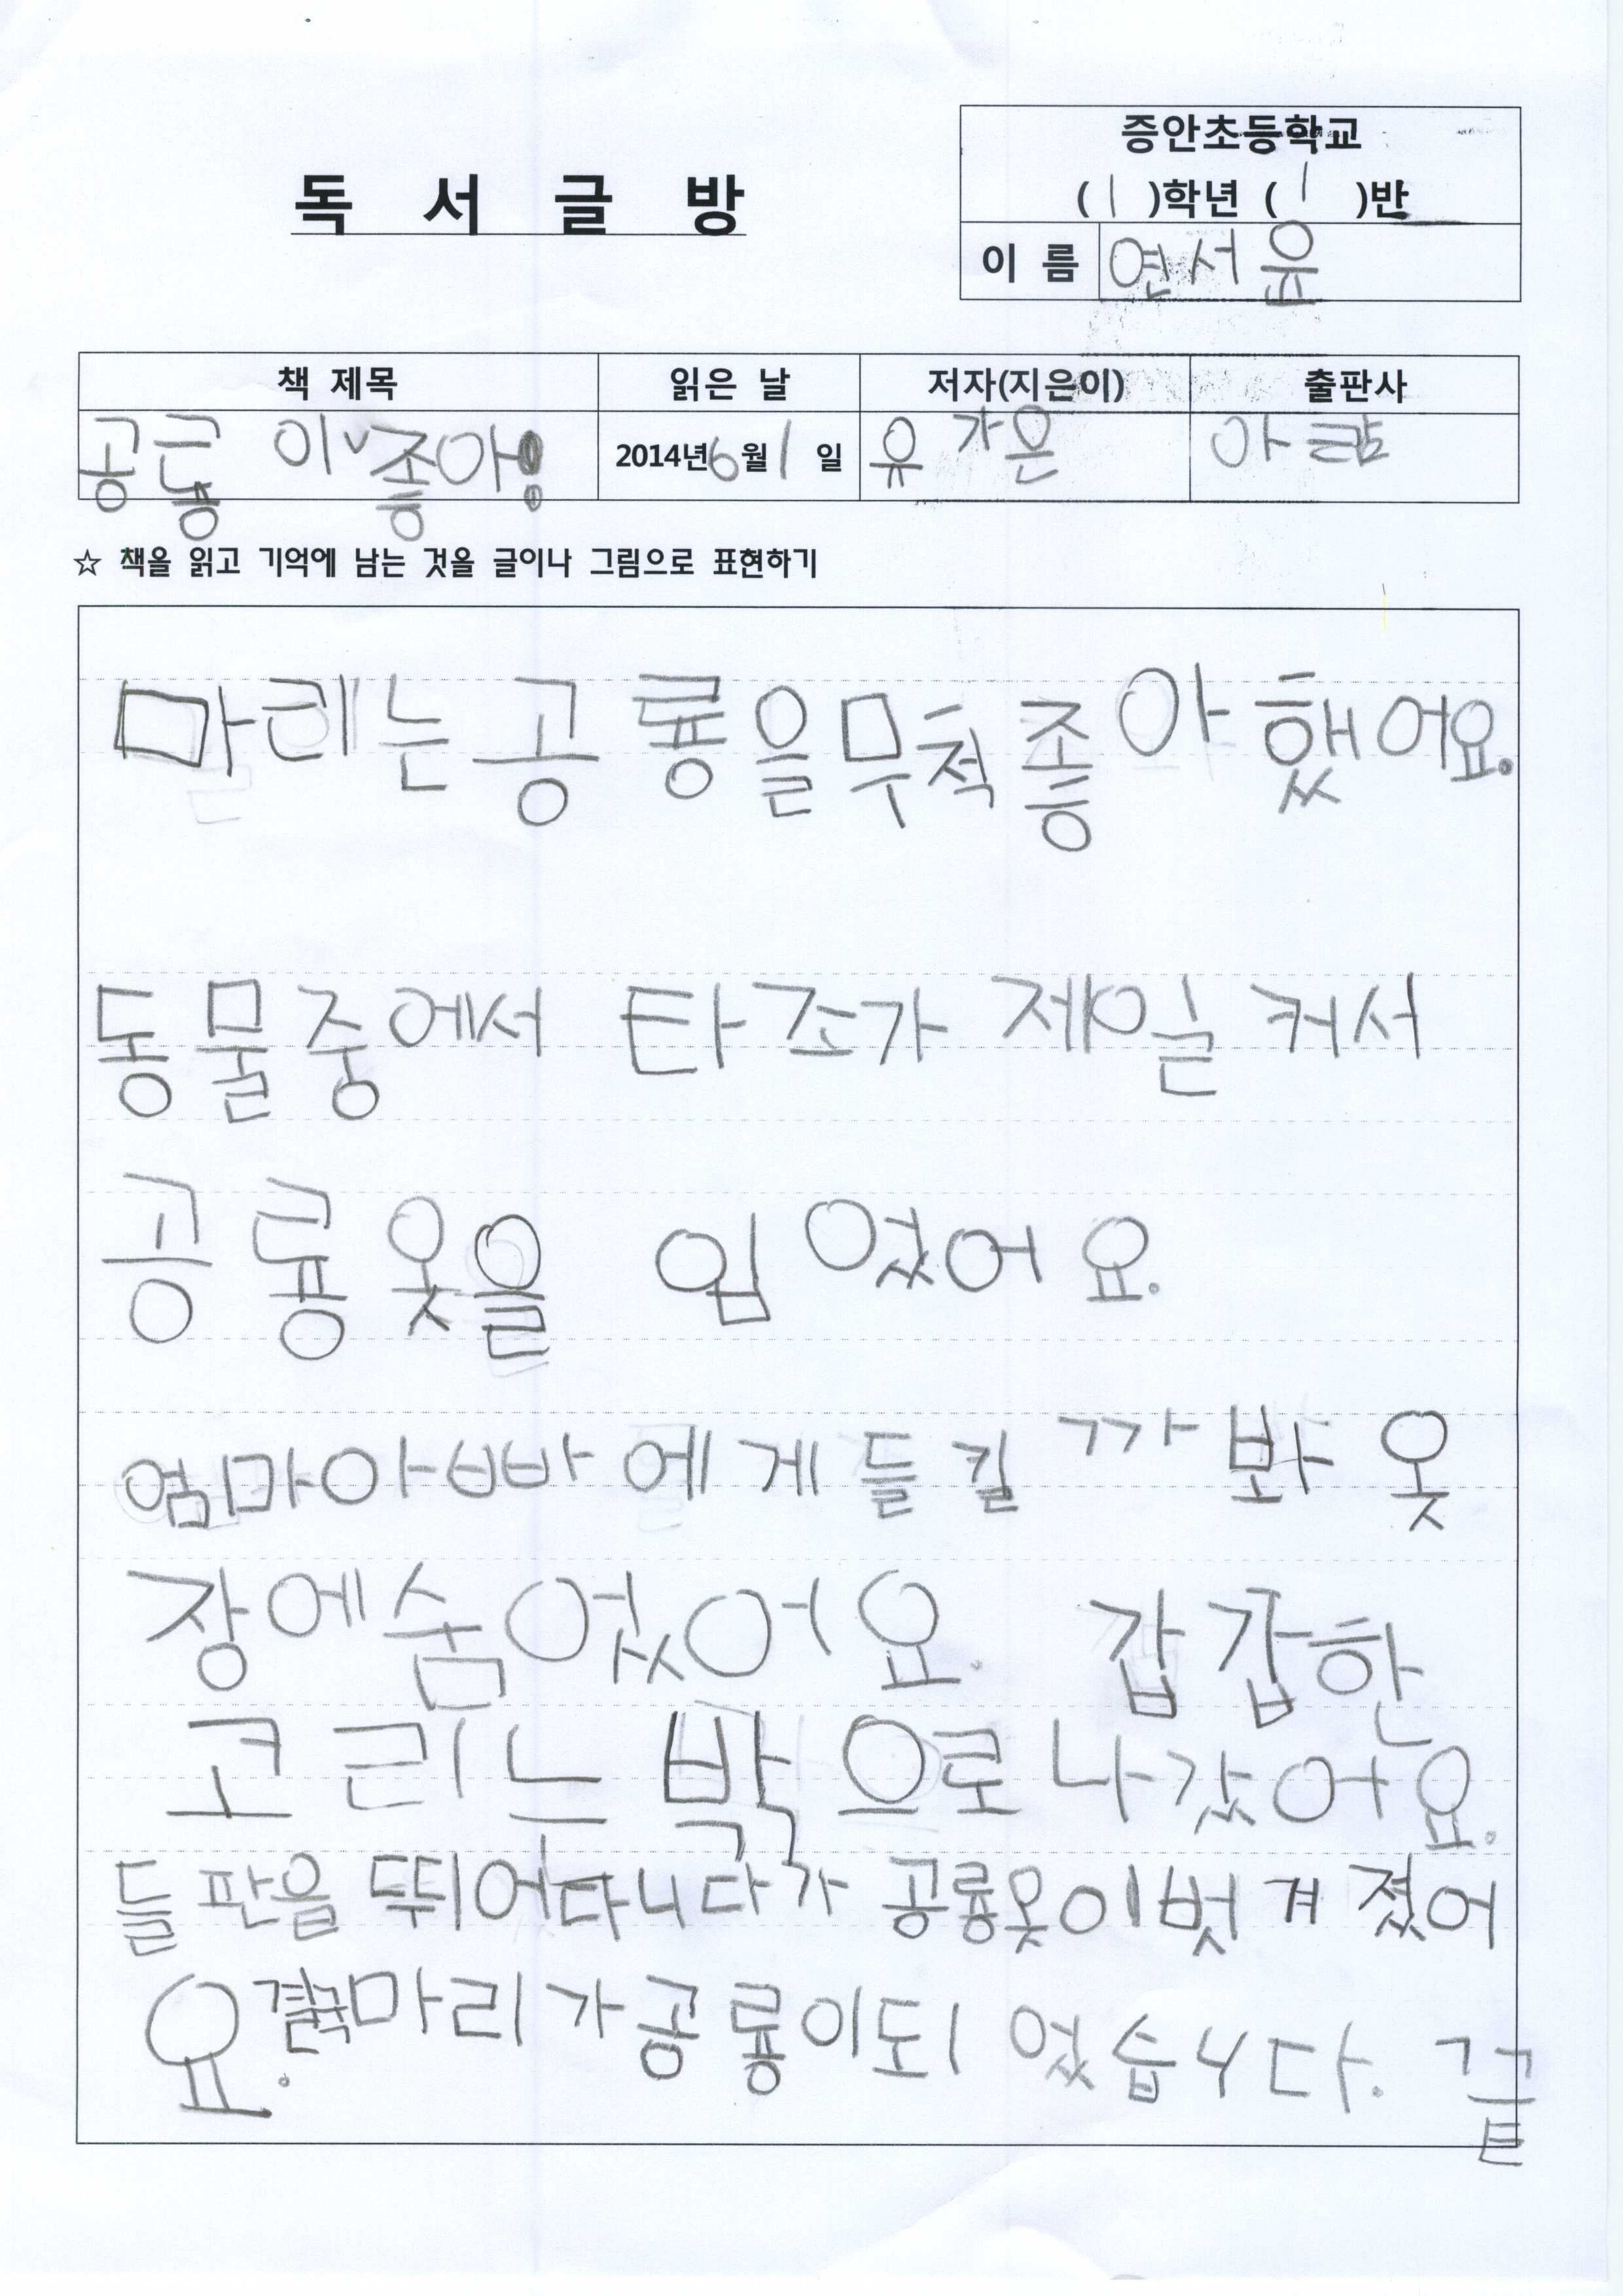 증안초등학교
독 서 글 방
( 1 )학년 ( 1 )반
이 름 연서윤
책 제목 읽은 날 저자(지은이) 출판사
공룡 이 좋아! 2014년 6월 1 일 유 가은 아람
☆ 책을 읽고 기억에 남는 것을 글이나 그림으로 표현하기
마리는 공룡을 무척 좋아 했어요.
동물중에서 타조가 제일 커서
공룡옷을 입었어요.
엄마아빠에게 들킬까봐 옷
장에숨었어요. 갑갑한
고리는 밖으로 나갔어요.
들판을 뛰어다니다가 공룡옷이벗겨졌어
요. 결국마리가공룡이되었습니다. 끝